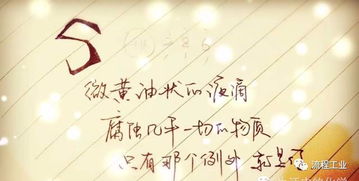 S
微黄油状的液滴
腐蚀几乎一切的物质
只有那个例外
流程工业